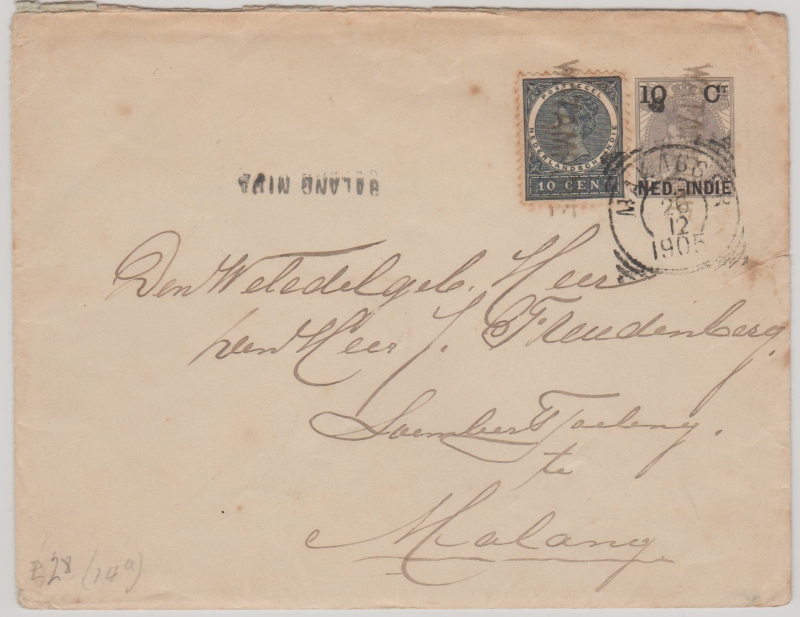 POSTZEGEL
NEDERLANDSCH-INDIE
10 CENT
10 CT
NED.-INDIE
MAKASSER
26
12
1905
BALANG NIPA
Den Weledelgeb. Heer
den Heer J. Freudenberg,
Soember Toeloeng.
te
Malang.
B28 (14a)